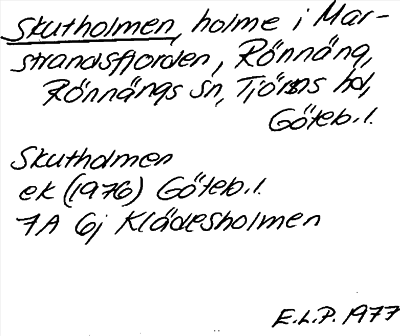 Skutholmen, holme i Mar-
strandsfjorden, Rönnäng,
Rönnängs sn, Tjörns hd,
Göteb.l.
Skutholmen
ek (1976) Göteb.l.
7A 6j Klädesholmen
E.L.P. 1977